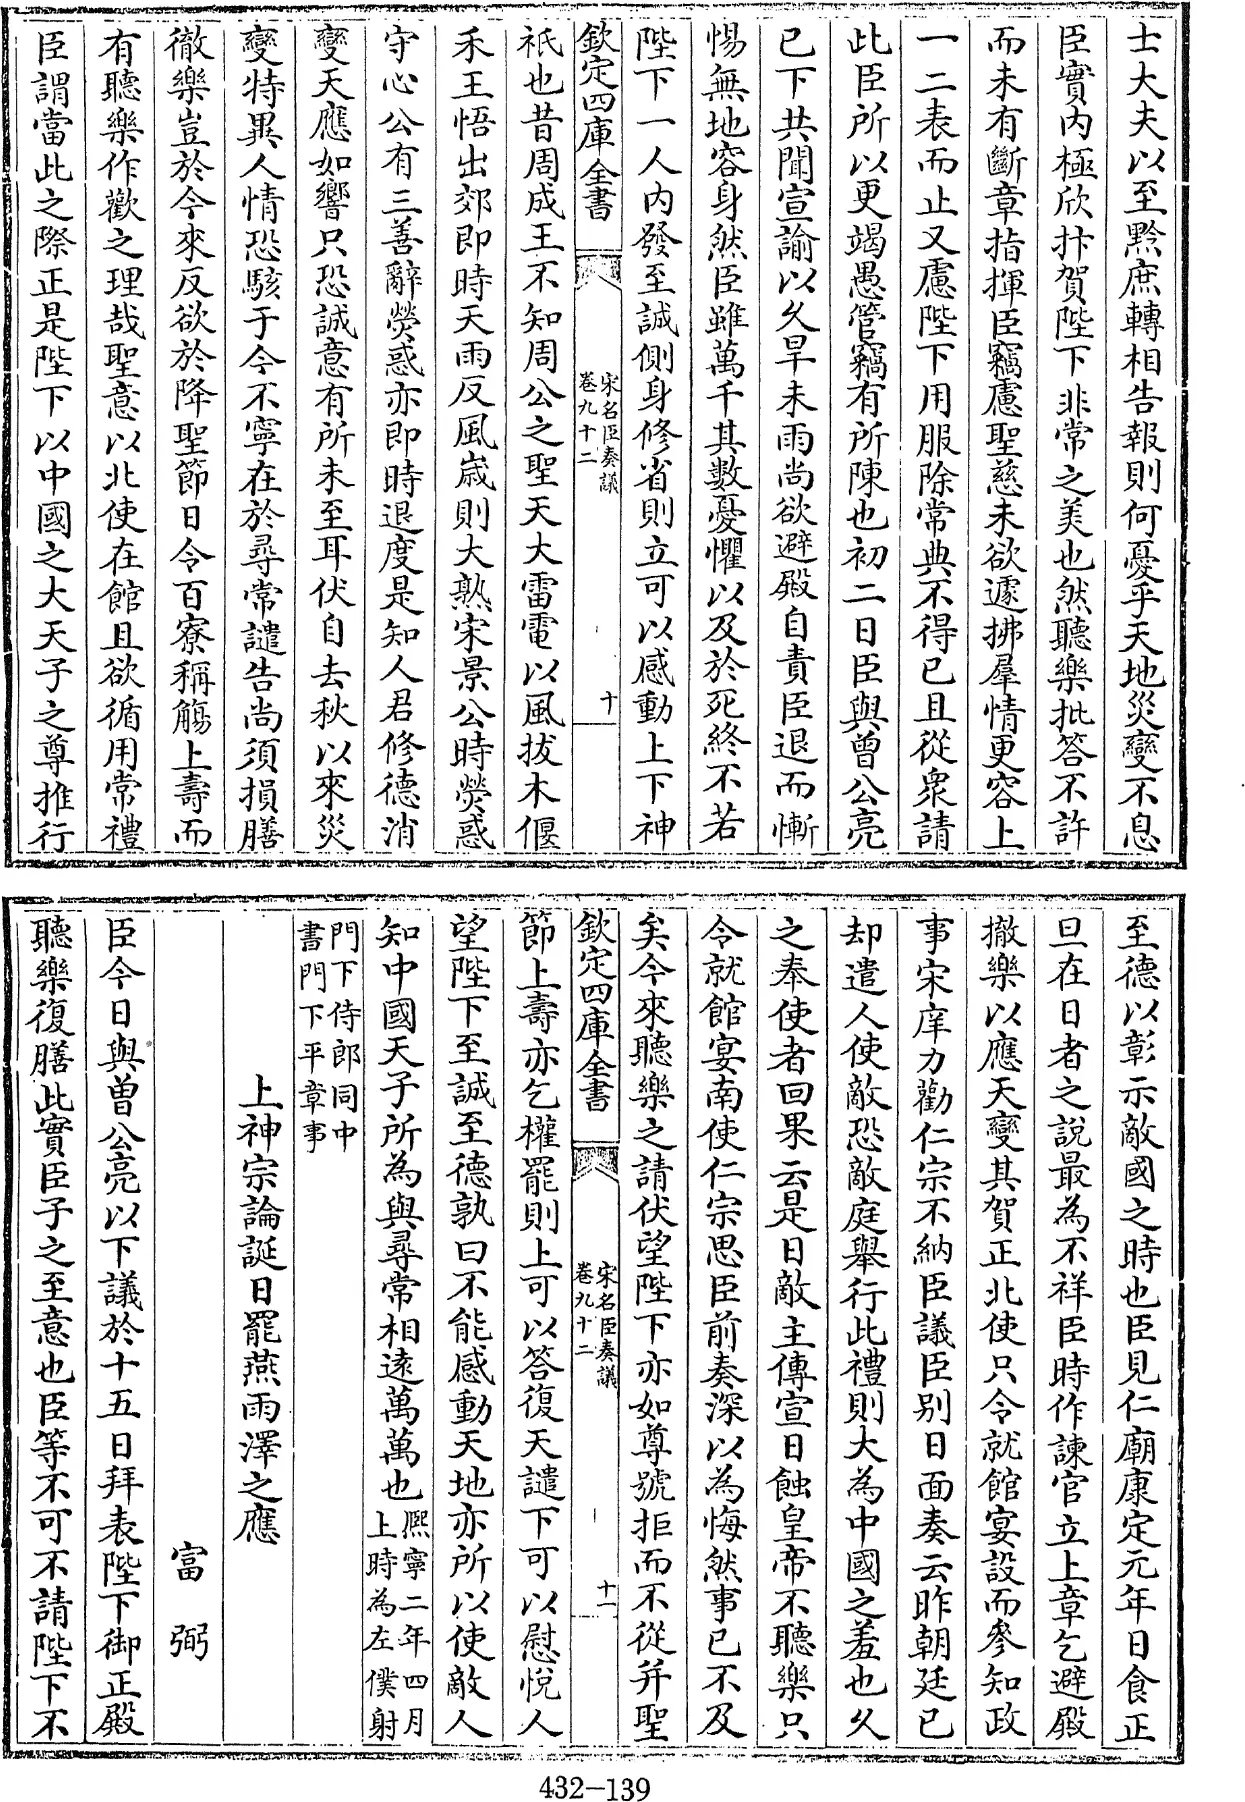 士大夫以至黔庶轉相告報則何憂乎天地災變不息
臣實內極欣抃賀陛下非常之美也然聽樂批答不許
而未有斷章指揮臣竊慮聖慈未欲遽拂羣情更容上
一二表而止又慮陛下用服除常典不得已且從衆請
此臣所以更竭愚管竊有所陳也初二日臣與曾公亮
已下共聞宣諭以久旱未雨尚欲避殿自責臣退而慚
惕無地容身然臣雖萬千其數憂懼以及於死終不若
陛下一人內發至誠側身修省則立可以感動上下神
欽定四庫全書
宋名臣奏議
卷九十二
十
祇也昔周成王不知周公之聖天大雷電以風拔木偃
禾王悟出郊即時天雨反風歲則大熟宋景公時熒惑
守心公有三善辭熒惑亦即時退度是知人君修德消
變天應如響只恐誠意有所未至耳伏自去秋以來災
變特異人情恐駭于今不寧在於尋常譴告尚須損膳
徹樂豈於今來反欲於降聖節日令百寮稱觴上壽而
有聽樂作歡之理哉聖意以北使在館且欲循用常禮
臣謂當此之際正是陛下以中國之大天子之尊推行
至德以彰示敵國之時也臣見仁廟康定元年日食正
旦在日者之說最為不祥臣時作諫官立上章乞避殿
撤樂以應天變其賀正北使只令就館宴設而參知政
事宋庠力勸仁宗不納臣議臣別日面奏云昨朝廷已
却遣人使敵恐敵庭舉行此禮則大為中國之羞也久
之奉使者回果云是日敵主傳宣日蝕皇帝不聽樂只
令就館宴南使仁宗思臣前奏深以為悔然事已不及
矣今來聽樂之請伏望陛下亦如尊號拒而不從并聖
欽定四庫全書
宋名臣奏議
卷九十二
十一
節上壽亦乞權罷則上可以答復天譴下可以慰悅人
望陛下至誠至德孰曰不能感動天地亦所以使敵人
知中國天子所為與尋常相遠萬萬也熙寧二年四月
上時為左僕射
門下侍郎同中
書門下平章事
上神宗論誕日罷燕雨澤之應
富弼
臣今日與曾公亮以下議於十五日拜表陛下御正殿
聽樂復膳此實臣子之至意也臣等不可不請陛下不
432-139